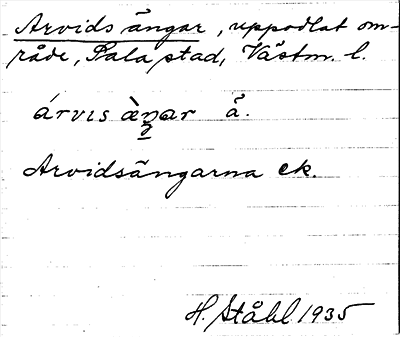 Arvids ängar, uppodlat om-
råde, Sala stad, Västm. l.
árvis æ̀ŋar å.
Arvidsängarna ek.
H. Ståhl 1935